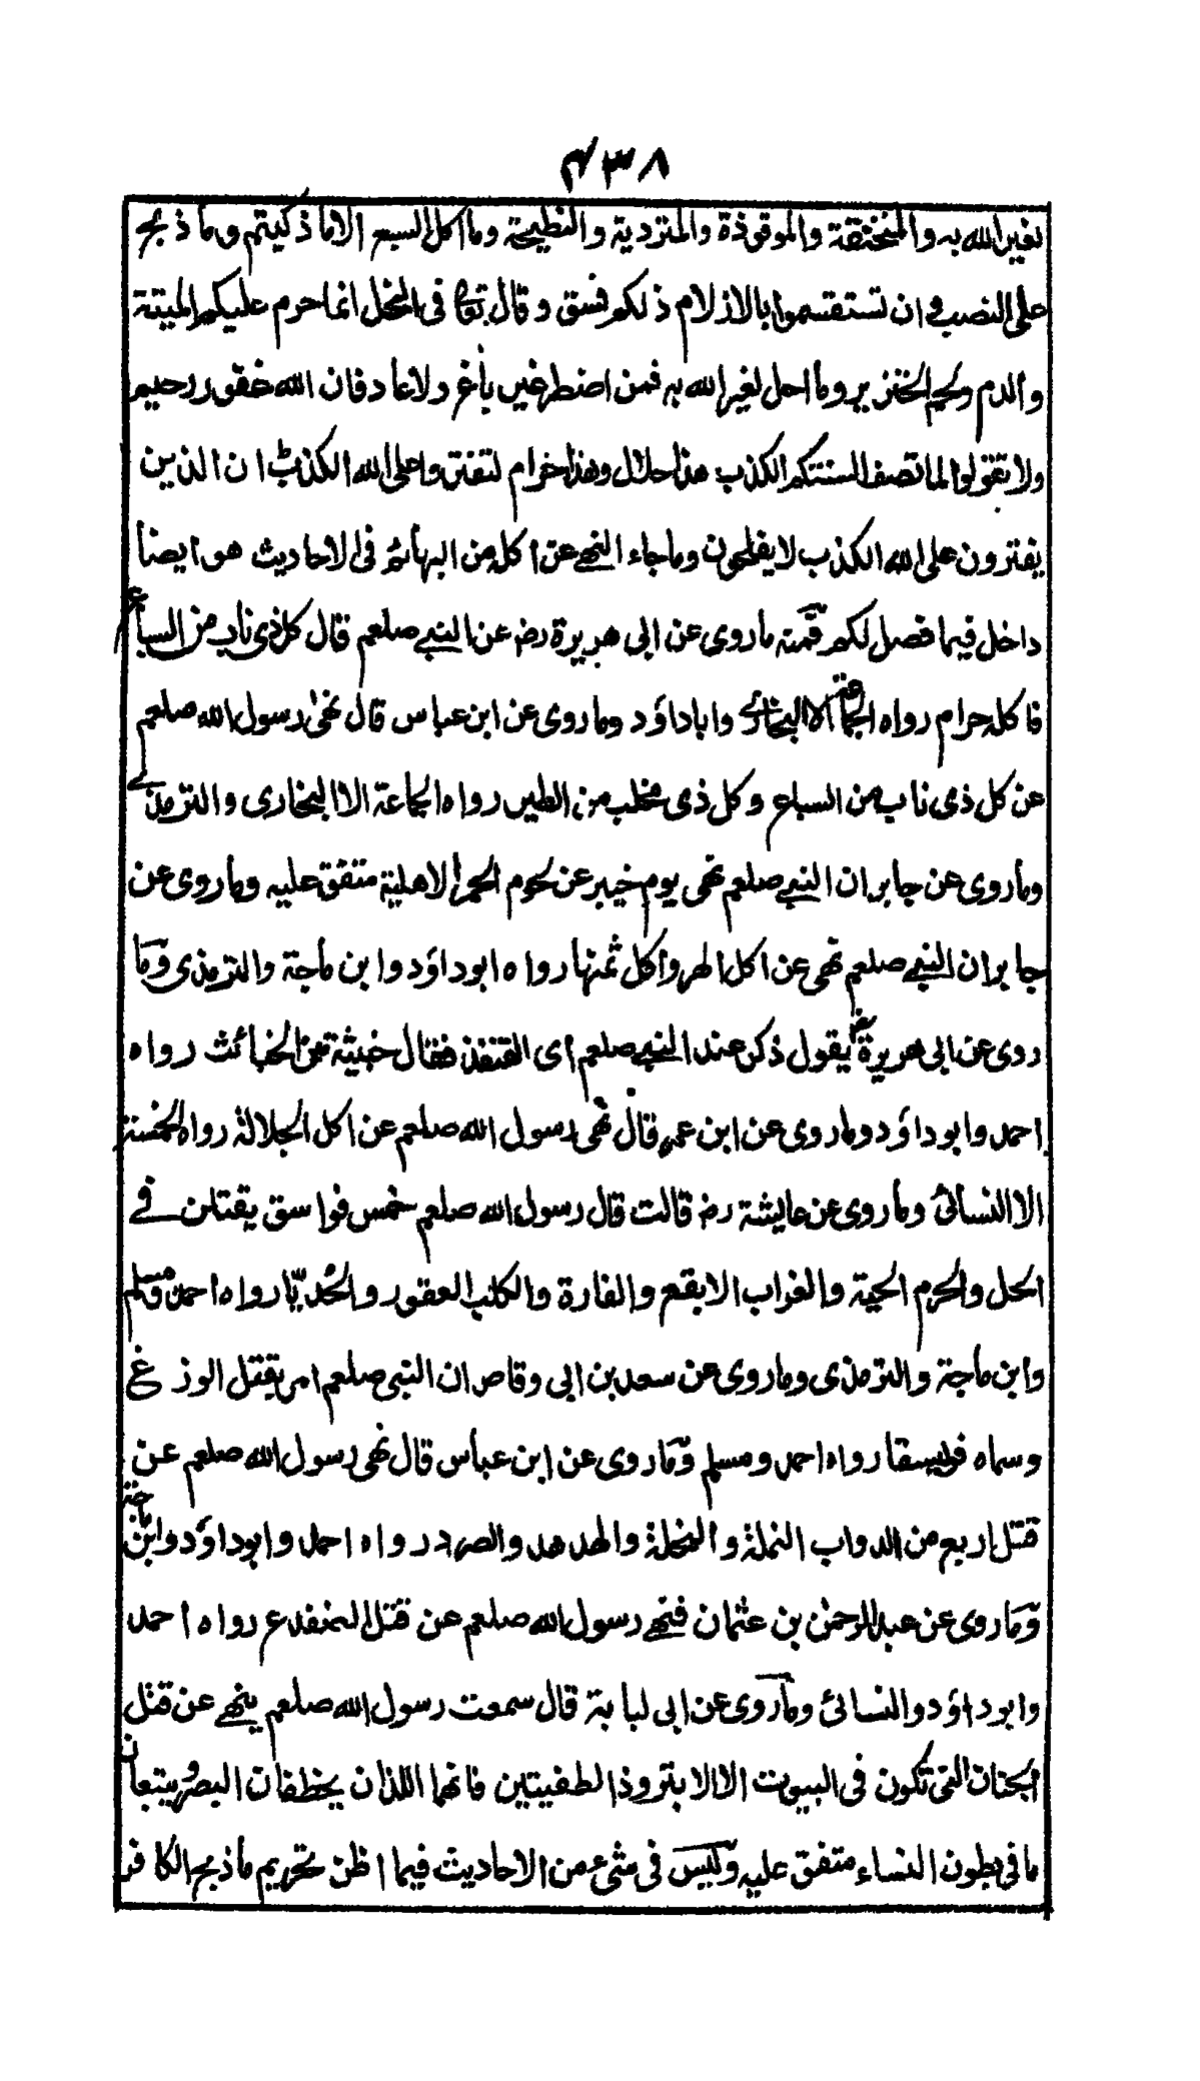 ۴۳۸
لغیر الله به والمنخنقة والموقوذة والمتردیة والنطیحة وما اکل السبع الا ما ذکیتم وما ذبح
علی النصب وان تستقسموا بالازلام ذلکم فسق وقال تعا فی النحل انما حرم علیکم المیتة
والدم ولحم الخنزیر وما احل لغیر الله به فمن اضطر غیر باغ ولا عاد فان الله غفور رحیم
ولا تقولوا لما تصف السنتکم الکذب هذا حلال وهذا حرام لتفتروا علی الله الکذب ان الذین
یفترون علی الله الکذب لا یفلحون وما جاء النهی عن اکله من البهائم فی الاحادیث هو ایضا
داخل فیما فصل لکم فمنه ما روی عن ابی هریرة رض عن النبی صلعم قال کل ذی ناب من السباع
فاکله حرام رواه الجماعة الا البخاری وابا داؤد وما روی عن ابن عباس قال نهی رسول الله صلعم
عن کل ذی ناب من السباع وکل ذی مخلب من الطیر رواه الجماعة الا البخاری والترمذی
وما روی عن جابر ان النبی صلعم نهی یوم خیبر عن لحوم الحمر الاهلیة متفق علیه وما روی عن
جابر ان النبی صلعم نهی عن اکل الهر واکل ثمنها رواه ابو داؤد وابن ماجة والترمذی وما
روی عن ابی هریرة رض یقول ذکر عند النبی صلعم ای القنفذ فقال خبیثة من الخبائث رواه
احمد وابو داؤد وما روی عن ابن عمر قال نهی رسول الله صلعم عن اکل الجلالة رواه الخمسة
الا النسائی وما روی عن عایشة رض قالت قال رسول الله صلعم خمس فواسق یقتلن فی
الحل والحرم الحیة والغراب الابقع والفارة والکلب العقور والحدیا رواه احمد ومسلم
وابن ماجة والترمذی وما روی عن سعد بن ابی وقاص ان النبی صلعم امر بقتل الوزغ
وسماه فویسقا رواه احمد ومسلم وما روی عن ابن عباس قال نهی رسول الله صلعم عن
قتل اربع من الدواب النملة والنحلة والهدهد والصرد رواه احمد وابو داؤد وابن ماجة
وما روی عن عبد الرحمٰن بن عثمان فنهی رسول الله صلعم عن قتل الضفدع رواه احمد
وابو داؤد والنسائی وما روی عن ابی لبابة قال سمعت رسول الله صلعم ینهی عن قتل
الجنان التی تکون فی البیوت الا الابتر وذا الطفیتین فانهما اللذان یخطفان البصر ویتبعان
ما فی بطون النساء متفق علیه ولیس فی شیٔ من الاحادیث فیما اظن تحریم ما ذبح الکافر